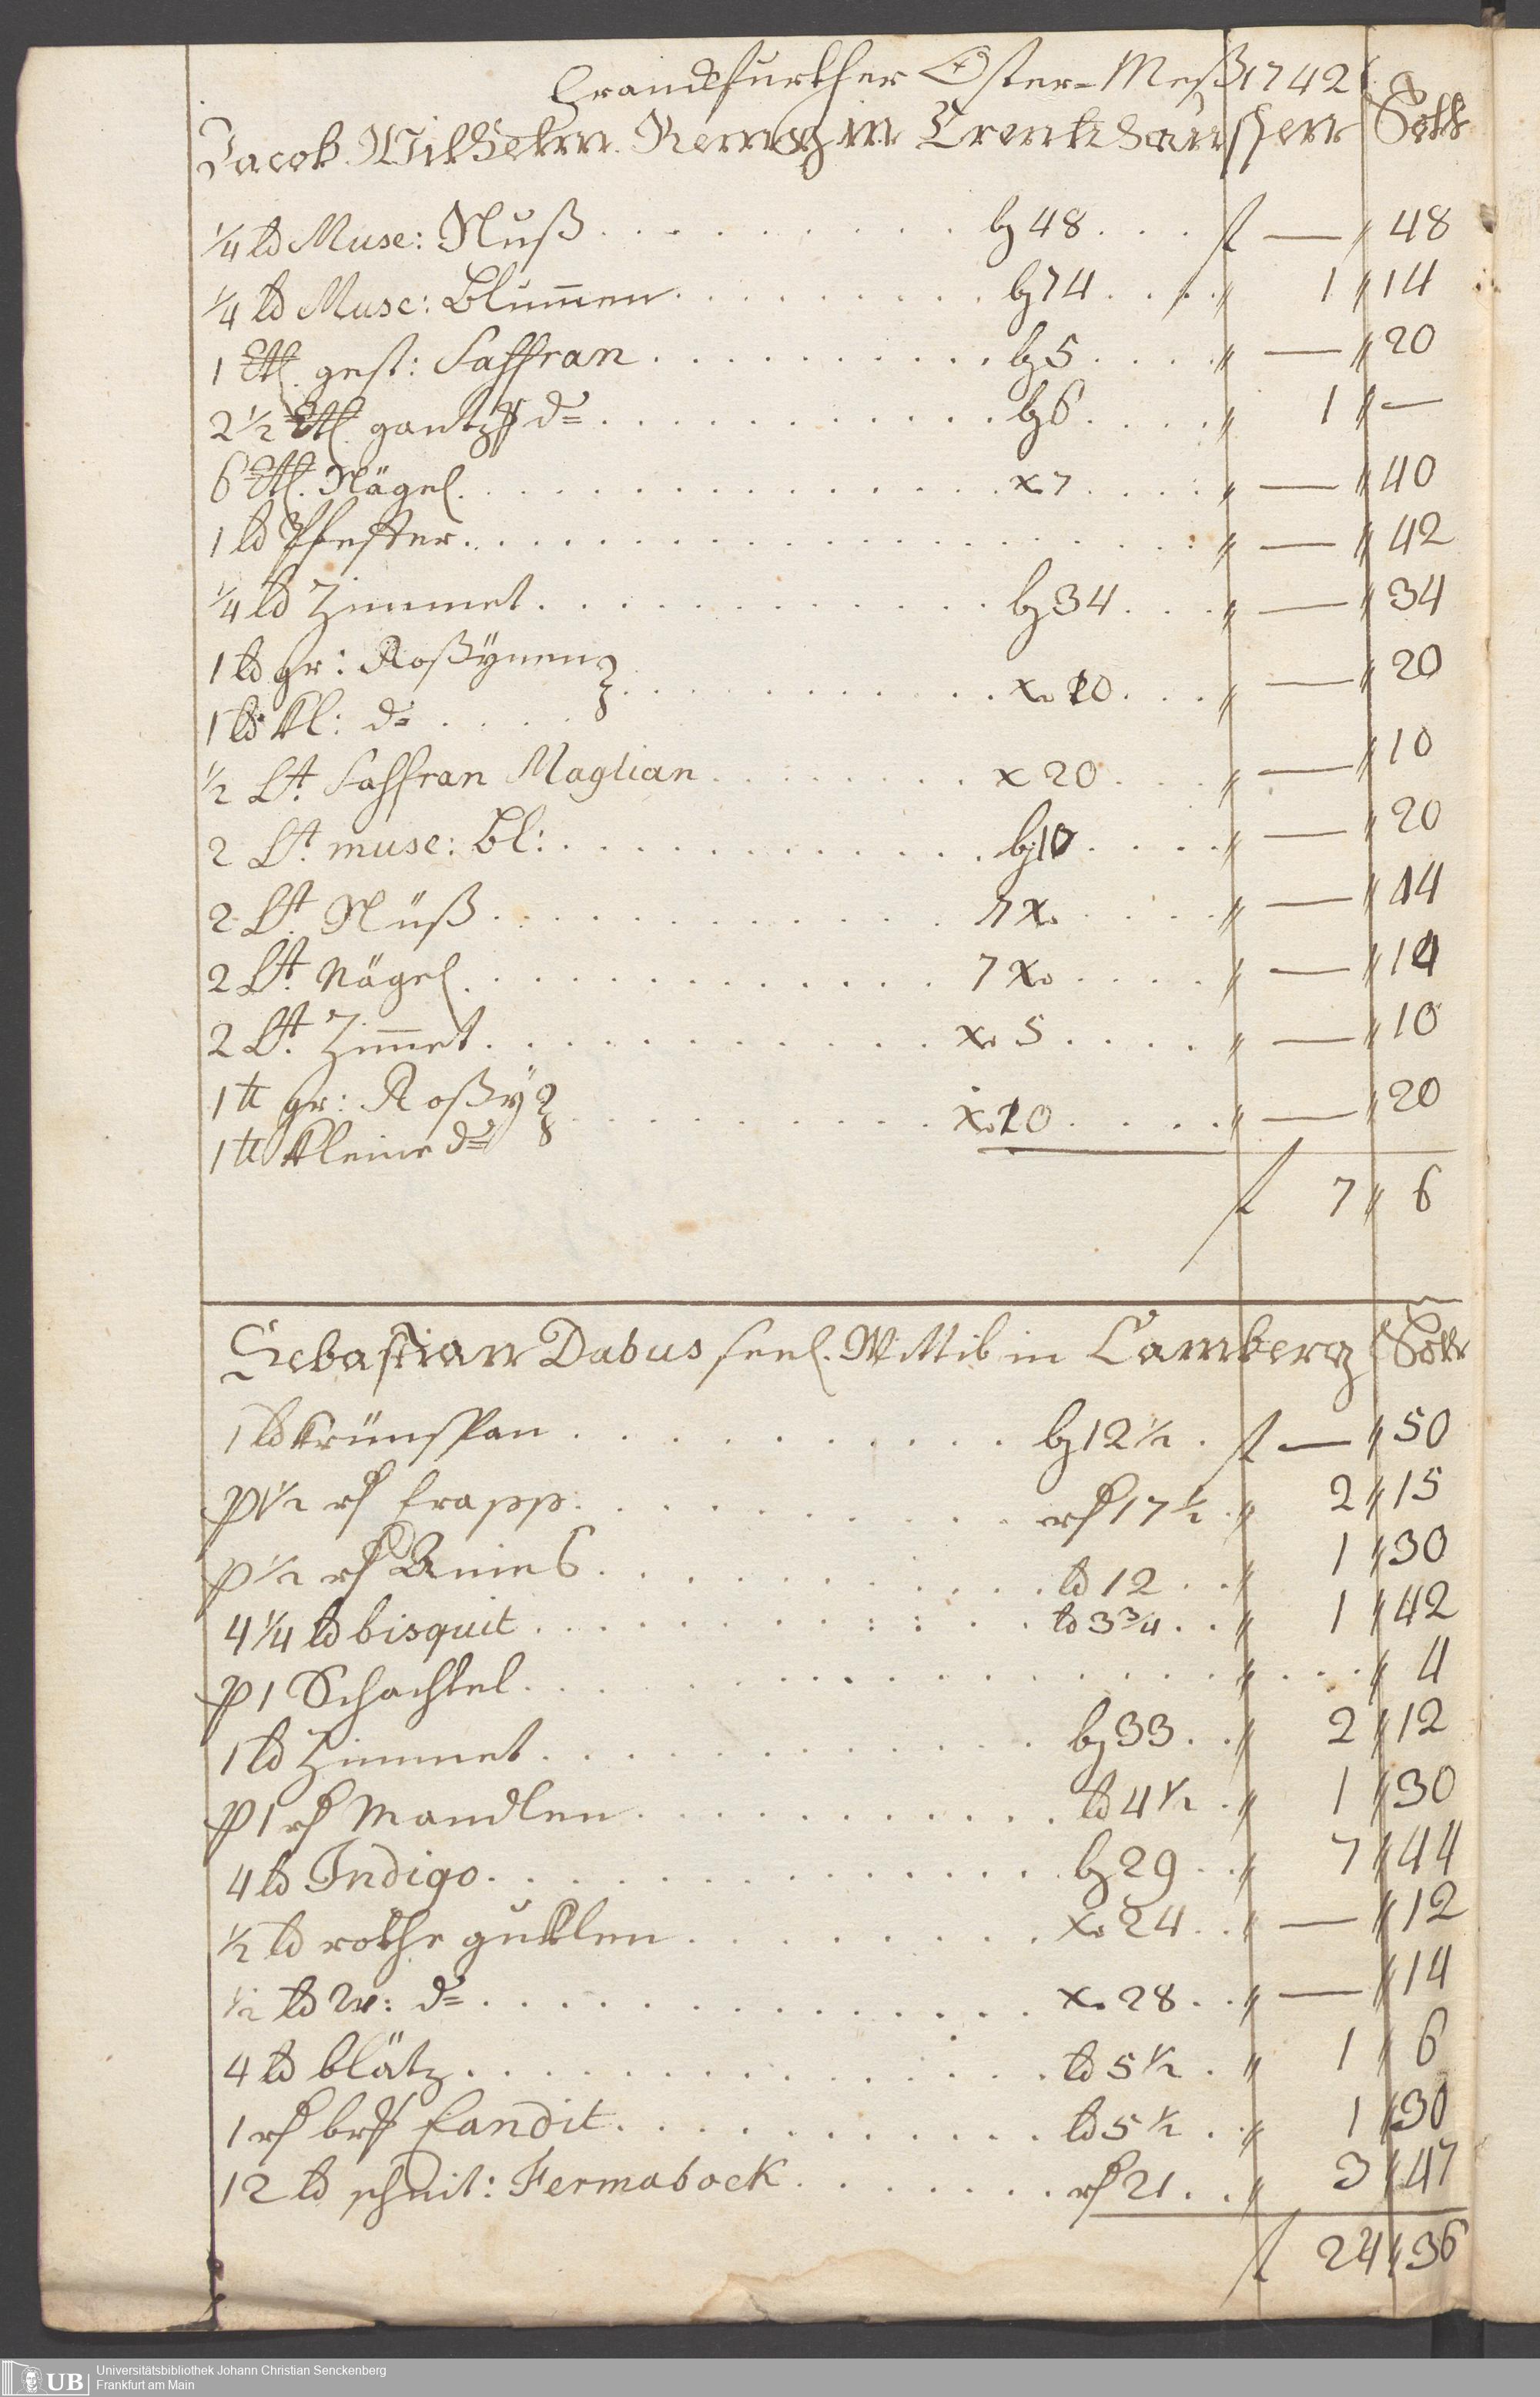 Franckfurther Oster-Meß 1742
Jacob Wilhelm Remy in Crentzhaussen Soll
¼ lb Musc: Nuß . . . . . . . . . bz 48 . . . fl — 〃 48
¼ lb Musc: Blumen . . . . . . . . . bz 74 . . . 〃 1 〃 14
1 Ltl. gest: Saffran . . . . . . . . . bz 5 . . . . 〃 — 〃 20
2½ Ltl. gantz do . . . . . . . . . bz 6 . . . . 〃 1 〃 —
6 Ltl. Nägel . . . . . . . . . x 7 . . . . 〃 — 〃 40
1 lb Pfeffer . . . . . . . . . 〃 — 〃 42
¼ lb Zimmet . . . . . . . . . bz 34 . . . 〃 — 〃 34
1 lb gr: Roßynen
1 lb kl: do . . . . . . . . . x. 20 . . . 〃 — 〃 20
½ Lt. Saffran Maglian . . . . . . . . x 20 . . . 〃 — 〃 10
2 Lt. musc: Bl: . . . . . . . . . bz 10 . . . . 〃 — 〃 20
2 Lt. Nüß . . . . . . . . . 7 x. . . . . 〃 — 〃 14
2 Lt. Nägel . . . . . . . . . 7 x. . . . . 〃 — 〃 14
2 Lt. Zimmet . . . . . . . . . x. 5 . . . . 〃 — 〃 10
1 lb gr: Roßy
1 lb kleine do . . . . . . . . . x. 20 . . . . 〃 — 〃 20
fl 7 〃 6
Sebastian Dabus seel. Wittib in Camberg Soll
1 lb Krünspan . . . . . . . . . bz 12½ . fl — 〃 50
p ½ rf Crapp . . . . . . . . . rf 17½ . 〃 2 〃 15
p ½ rf Anies . . . . . . . . . lb 12 . . 〃 1 〃 30
4¼ lb bisquit . . . . . . . . . lb 3¾ . . 〃 1 〃 42
p 1 Schachtel . . . . . . . . . 〃 . . . 〃 4
1 lb Zimmet . . . . . . . . . bz 33 . . 〃 2 〃 12
p 1 rf Mandlen . . . . . . . . . lb 4½ . 〃 1 〃 30
4 lb Indigo . . . . . . . . . bz 29 . . 〃 7 〃 44
½ lb rothe gutlen . . . . . . . . . x. 24 . . 〃 — 〃 12
½ lb w: do . . . . . . . . . x. 28 . . 〃 — 〃 14
4 lb blätz . . . . . . . . . lb 5½ . 〃 1 〃 6
1 rf br Candit . . . . . . . . . lb 5½ . 〃 1 〃 30
12 lb schnit: Fermabock . . . . . . . rf 21 . . 〃 3 〃 47
fl 24 〃 36
UB Universitätsbibliothek Johann Christian Senckenberg
Frankfurt am Main